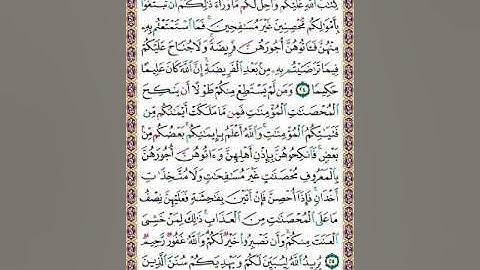 كِتَٰبَ ٱللَّهِ عَلَيْكُمْ وَأُحِلَّ لَكُم مَّا وَرَآءَ ذَٰلِكُمْ أَن تَبْتَغُوا۟
بِأَمْوَٰلِكُم مُّحْصِنِينَ غَيْرَ مُسَٰفِحِينَ ۚ فَمَا ٱسْتَمْتَعْتُم بِهِۦ
مِنْهُنَّ فَـَٔاتُوهُنَّ أُجُورَهُنَّ فَرِيضَةً ۚ وَلَا جُنَاحَ عَلَيْكُمْ
فِيمَا تَرَٰضَيْتُم بِهِۦ مِنۢ بَعْدِ ٱلْفَرِيضَةِ ۚ إِنَّ ٱللَّهَ كَانَ عَلِيمًا
حَكِيمًا ٢٤ وَمَن لَّمْ يَسْتَطِعْ مِنكُمْ طَوْلًا أَن يَنكِحَ
ٱلْمُحْصَنَٰتِ ٱلْمُؤْمِنَٰتِ فَمِن مَّا مَلَكَتْ أَيْمَٰنُكُم مِّن
فَتَيَٰتِكُمُ ٱلْمُؤْمِنَٰتِ ۚ وَٱللَّهُ أَعْلَمُ بِإِيمَٰنِكُم ۚ بَعْضُكُم مِّنۢ
بَعْضٍ ۚ فَٱنكِحُوهُنَّ بِإِذْنِ أَهْلِهِنَّ وَءَاتُوهُنَّ أُجُورَهُنَّ
بِٱلْمَعْرُوفِ مُحْصَنَٰتٍ غَيْرَ مُسَٰفِحَٰتٍ وَلَا مُتَّخِذَٰتِ
أَخْدَانٍ ۚ فَإِذَآ أُحْصِنَّ فَإِنْ أَتَيْنَ بِفَٰحِشَةٍ فَعَلَيْهِنَّ نِصْفُ
مَا عَلَى ٱلْمُحْصَنَٰتِ مِنَ ٱلْعَذَابِ ۚ ذَٰلِكَ لِمَنْ خَشِىَ
ٱلْعَنَتَ مِنكُمْ ۚ وَأَن تَصْبِرُوا۟ خَيْرٌ لَّكُمْ ۗ وَٱللَّهُ غَفُورٌ رَّحِيمٌ
٢٥ يُرِيدُ ٱللَّهُ لِيُبَيِّنَ لَكُمْ وَيَهْدِيَكُمْ سُنَنَ ٱلَّذِينَ